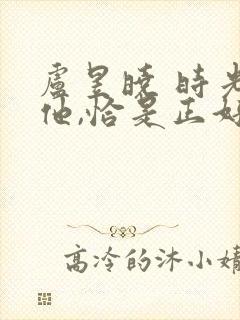 盧昱曉 時光
他,恰是正好
高冷的沐小婧